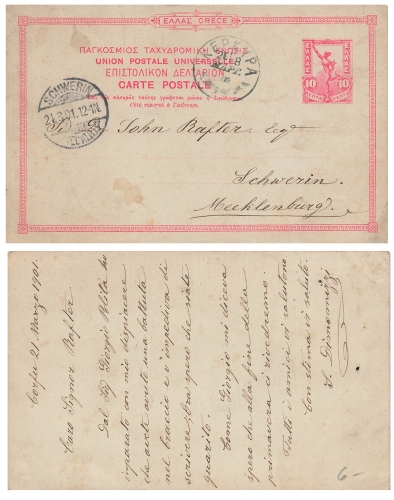 ΕΛΛΑΣ-GRECE
ΠΑΓΚΟΣΜΙΟΣ ΤΑΧΥΔΡΟΜΙΚΗ ΕΝΩΣΙΣ
UNION POSTALE UNIVERSELLE
ΕΠΙΣΤΟΛΙΚΟΝ ΔΕΛΤΑΡΙΟΝ
CARTE POSTALE
Côté réservé à l'adresse.
ΕΛΛΑΣ
10 10
SCHWERIN
John Rafter Esq
Schwerin.
Mecklenburg.
Corfu 21 Marzo 1901.
Caro Signor Rafter
Dal Sig Giorgio ho
imparato con mio dispiacere
che avete avuto una battuta
nel braccio e v'impediva di
scrivere. Ora spero che siate
guarito.
Come Giorgio mi diceva
spero che alla fine della
primavera ci rivedremo
Tutti i amici vi salutano
Con stima vi saluto.
6-